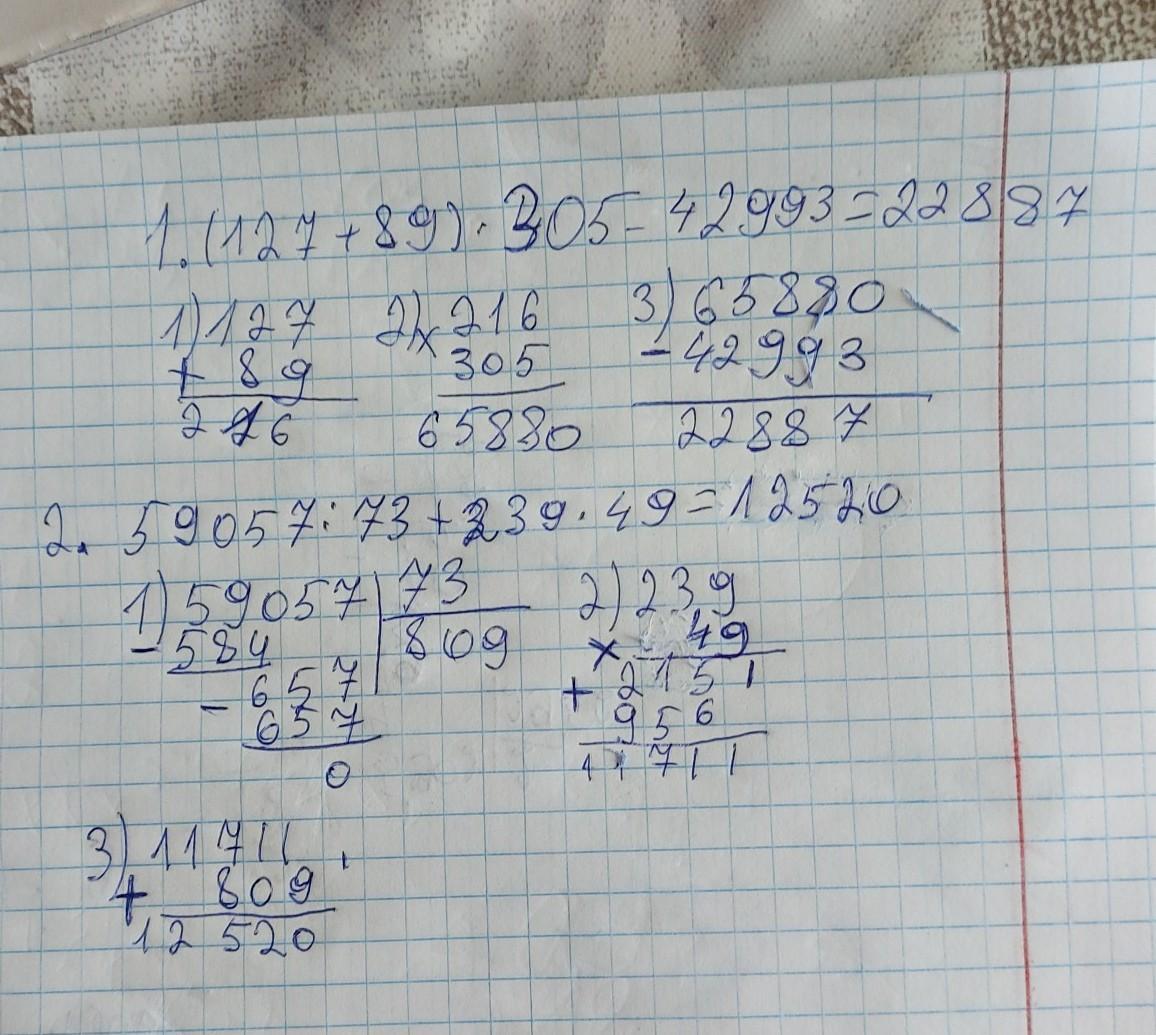 1. (127 + 89) · 305 - 42993 = 22887
1) 127 2) × 216 3) 65880
+ 89 305 - 42993
216 65880 22887
2. 59057 : 73 + 239 · 49 = 12520
1) 59057 73 2) 239
- 584 809 × 49
- 657 + 2151
657 956
0 11711
3) 11711
+ 809
12520